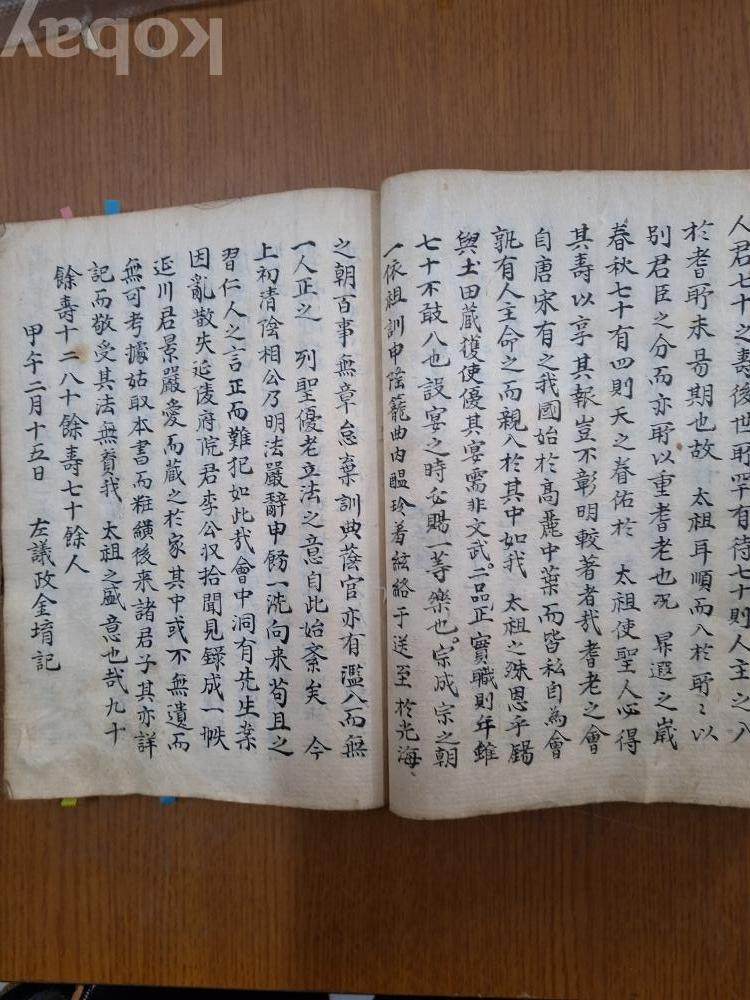 人君七十之壽後世所罕有待七十則人主之入
於耆所未易期也故 太祖耳順而入於所〻以
別君臣之分而亦所以重耆老也况 昇遐之歲
春秋七十有四則天之眷佑於 太祖使聖人必得
其壽以享其報豈不彰明較著者哉耆老之會
自唐宋有之我國始於高麗中葉而皆私自為會
孰有人主命之而親入於其中如我 太祖之殊恩乎錫
與土田藏獲使優其宴需非文武二品正實職則年雖
七十不敢入也設宴之時必賜一等樂也宗成宗之朝
一依祖訓申蔭籠曲內醞珍着絃絡于送至於光海
之朝百事無章怠棄訓典蔭官亦有濫入而無
一人正之 列聖優老立法之意自此始紊矣 今
上初清陰相公乃明法嚴辭申飭一洗向來苟且之
習仁人之言正而難犯如此哉會中洞有先生案
因亂散失延陵府院君李公収拾聞見錄成一帙
延川君景嚴愛而藏之於家其中或不無遺而
無可考據姑取本書而粧績後來諸君子其亦詳
記而敬受其法無負我 太祖之盛意也哉九十
餘壽十二八十餘壽七十餘人
甲午二月十五日 左議政金堉記
kobay